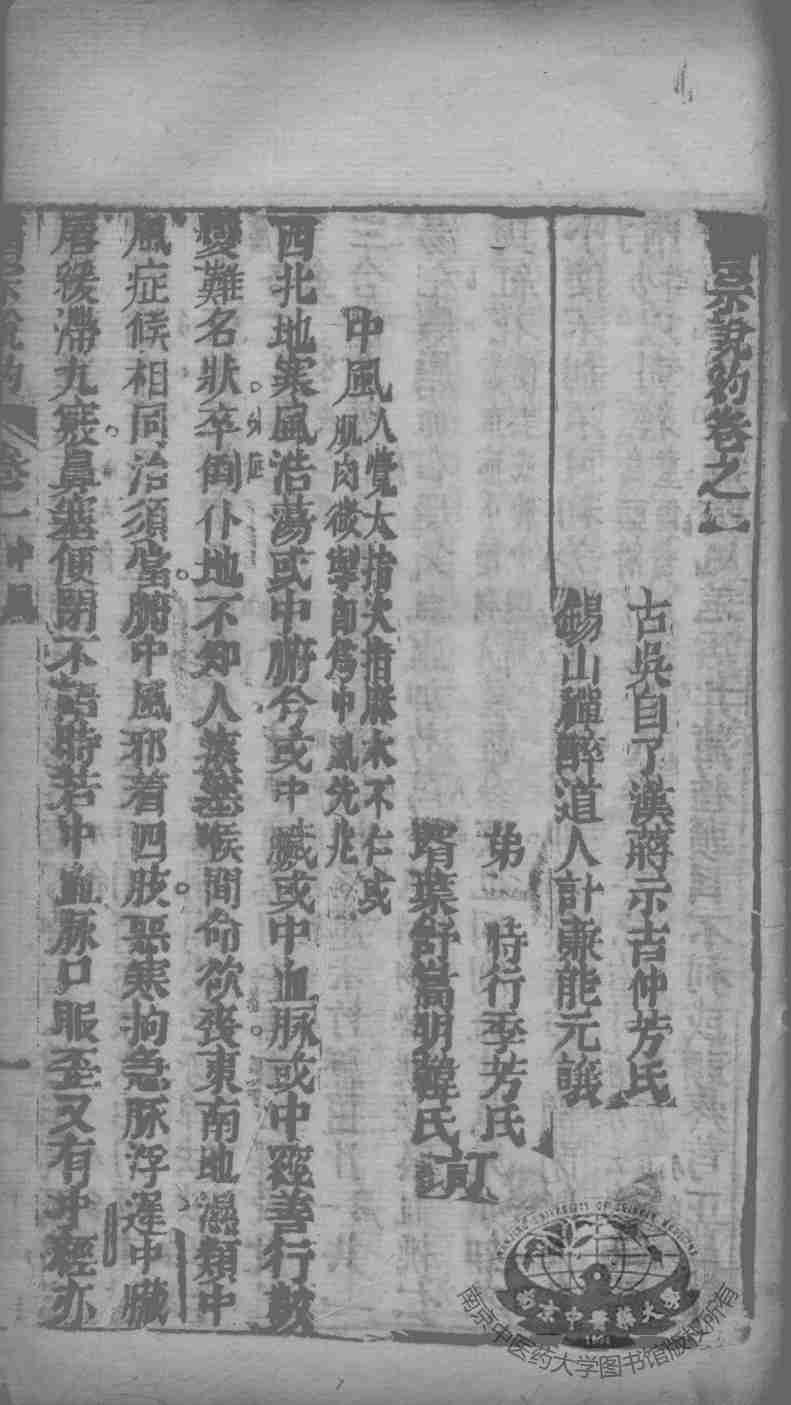 醫宗說約卷之一
古吳自了漢蔣示吉仲芳氏
錫山禪醉道人計兼能元議
弟 時行季芳氏
壻葉舒嵩朋韓氏
訂
中風
人覺大指次指麻木不仁或
肌肉微掣卽爲中風先兆
西北地寒風浩蕩或中腑兮或中臟或中血脉或中經善行數
變難名狀卒倒仆地不知人痰塞喉間命欲喪東南地濕類中
風症候相同治須當腑中風邪着四肢惡寒拘急脉浮遲中臟
唇緩滯九竅鼻塞便閉不語時若中血脉口眼歪又有中經亦
醫宗說約
卷一中風
一
南京中醫藥大學
南京中医药大学图书馆版权所有